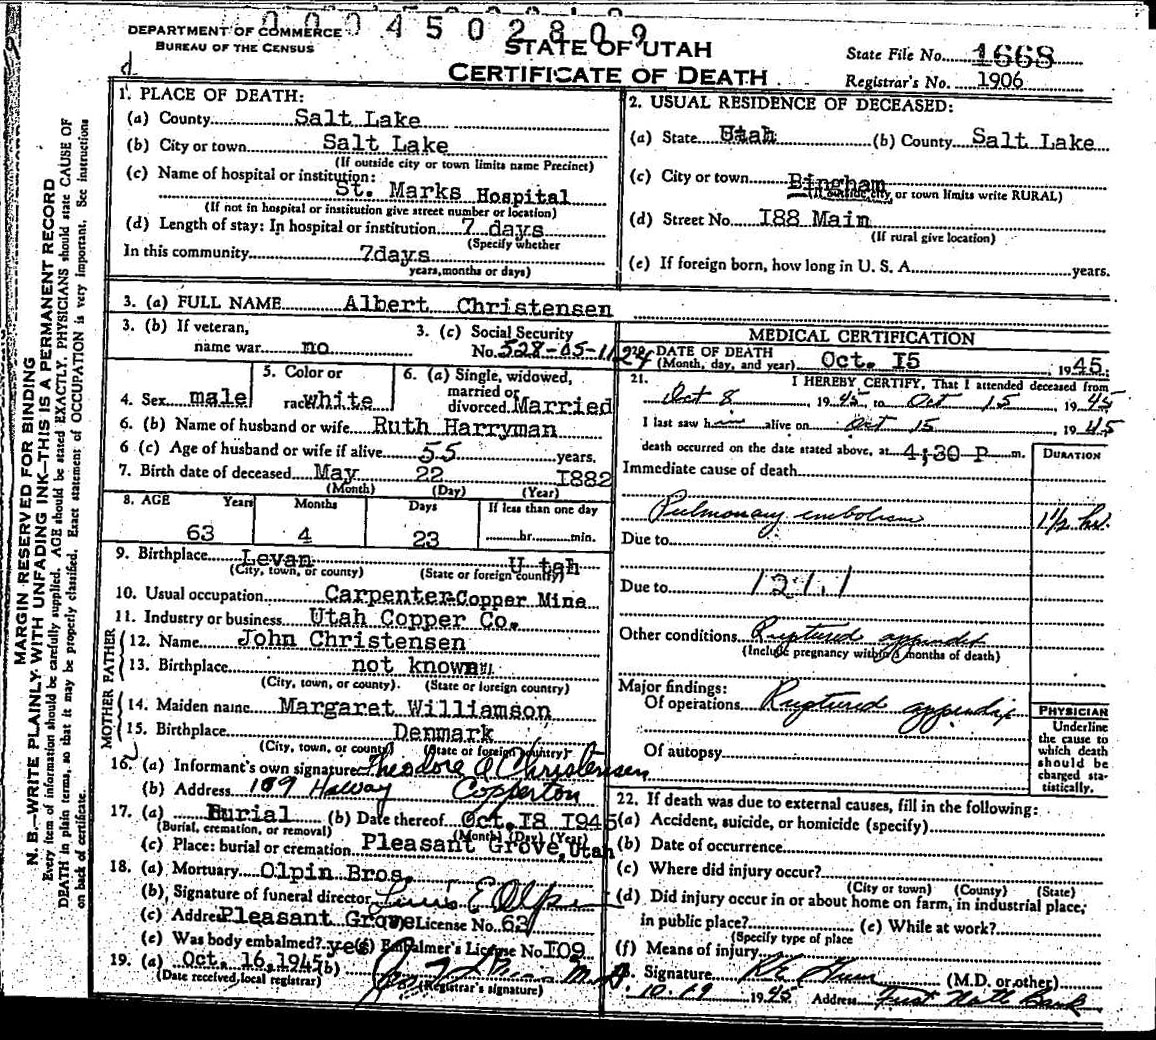 0004502809
DEPARTMENT OF COMMERCE
BUREAU OF THE CENSUS
STATE OF UTAH
CERTIFICATE OF DEATH
State File No. 1668
Registrar's No. 1906
MARGIN RESERVED FOR BINDING
N. B.—WRITE PLAINLY, WITH UNFADING INK—THIS IS A PERMANENT RECORD
Every item of information should be carefully supplied. AGE should be stated EXACTLY. PHYSICIANS should state CAUSE OF
DEATH in plain terms, so that it may be properly classified. Exact statement of OCCUPATION is very important. See instructions
on back of certificate.
1. PLACE OF DEATH:
(a) County Salt Lake
(b) City or town Salt Lake
(If outside city or town limits name Precinct)
(c) Name of hospital or institution:
St. Marks Hospital
(If not in hospital or institution give street number or location)
(d) Length of stay: In hospital or institution 7 days
(Specify whether
In this community 7days
years, months or days)
2. USUAL RESIDENCE OF DECEASED:
(a) State Utah (b) County Salt Lake
(c) City or town Bingham
(If outside city, or town limits write RURAL)
(d) Street No. I88 Main
(If rural give location)
(e) If foreign born, how long in U. S. A. years.
3. (a) FULL NAME Albert Christensen
3. (b) If veteran, name war no
3. (c) Social Security No. 528-05-1124
4. Sex male
5. Color or race white
6. (a) Single, widowed, married or divorced Married
6. (b) Name of husband or wife Ruth Harryman
6 (c) Age of husband or wife if alive 55 years.
7. Birth date of deceased May 22 I882
(Month) (Day) (Year)
8. AGE Years Months Days If less than one day
63 4 23 hr. min.
9. Birthplace Levan Utah
(City, town, or county) (State or foreign country)
10. Usual occupation Carpenter-Copper Mine
11. Industry or business Utah Copper Co.
FATHER
12. Name John Christensen
13. Birthplace not known
(City, town, or county). (State or foreign country)
MOTHER
14. Maiden name Margaret Williamson
15. Birthplace Denmark
(City, town, or county) (State or foreign country)
16. (a) Informant's own signature Theodore A Christensen
(b) Address 109 Copperton
17. (a) Burial (b) Date thereof Oct. I8 I945
(Burial, cremation, or removal) (Month) (Day) (Year)
(c) Place: burial or cremation Pleasant Grove, Utah
18. (a) Mortuary Olpin Bros.
(b) Signature of funeral director E Olpin
(c) Address Pleasant Grove License No. 63
(e) Was body embalmed? yes Embalmer's License No I09
19. (a) Oct. 16, 1945 (b) M.D.
(Date received, local registrar) (Registrar's signature)
MEDICAL CERTIFICATION
20. DATE OF DEATH Oct. I5 1945
(Month, day, and year)
21. I HEREBY CERTIFY, That I attended deceased from
Oct 8, 1945 to Oct 15, 1945
I last saw him alive on Oct 15 1945
death occurred on the date stated above, at 4:30 P m.
DURATION
Immediate cause of death
Pulmonary embolism 1½ hrs.
Due to
Due to 121.1
Other conditions Ruptured appendix
(Include pregnancy within 3 months of death)
Major findings:
Of operations Ruptured appendix
Of autopsy
PHYSICIAN
Underline
the cause to
which death
should be
charged sta-
tistically.
22. If death was due to external causes, fill in the following:
(a) Accident, suicide, or homicide (specify)
(b) Date of occurrence
(c) Where did injury occur?
(City or town) (County) (State)
(d) Did injury occur in or about home on farm, in industrial place,
in public place? (e) While at work?
(Specify type of place
(f) Means of injury
Signature (M.D. or other)
10-19 1945 Address First Natl Bank